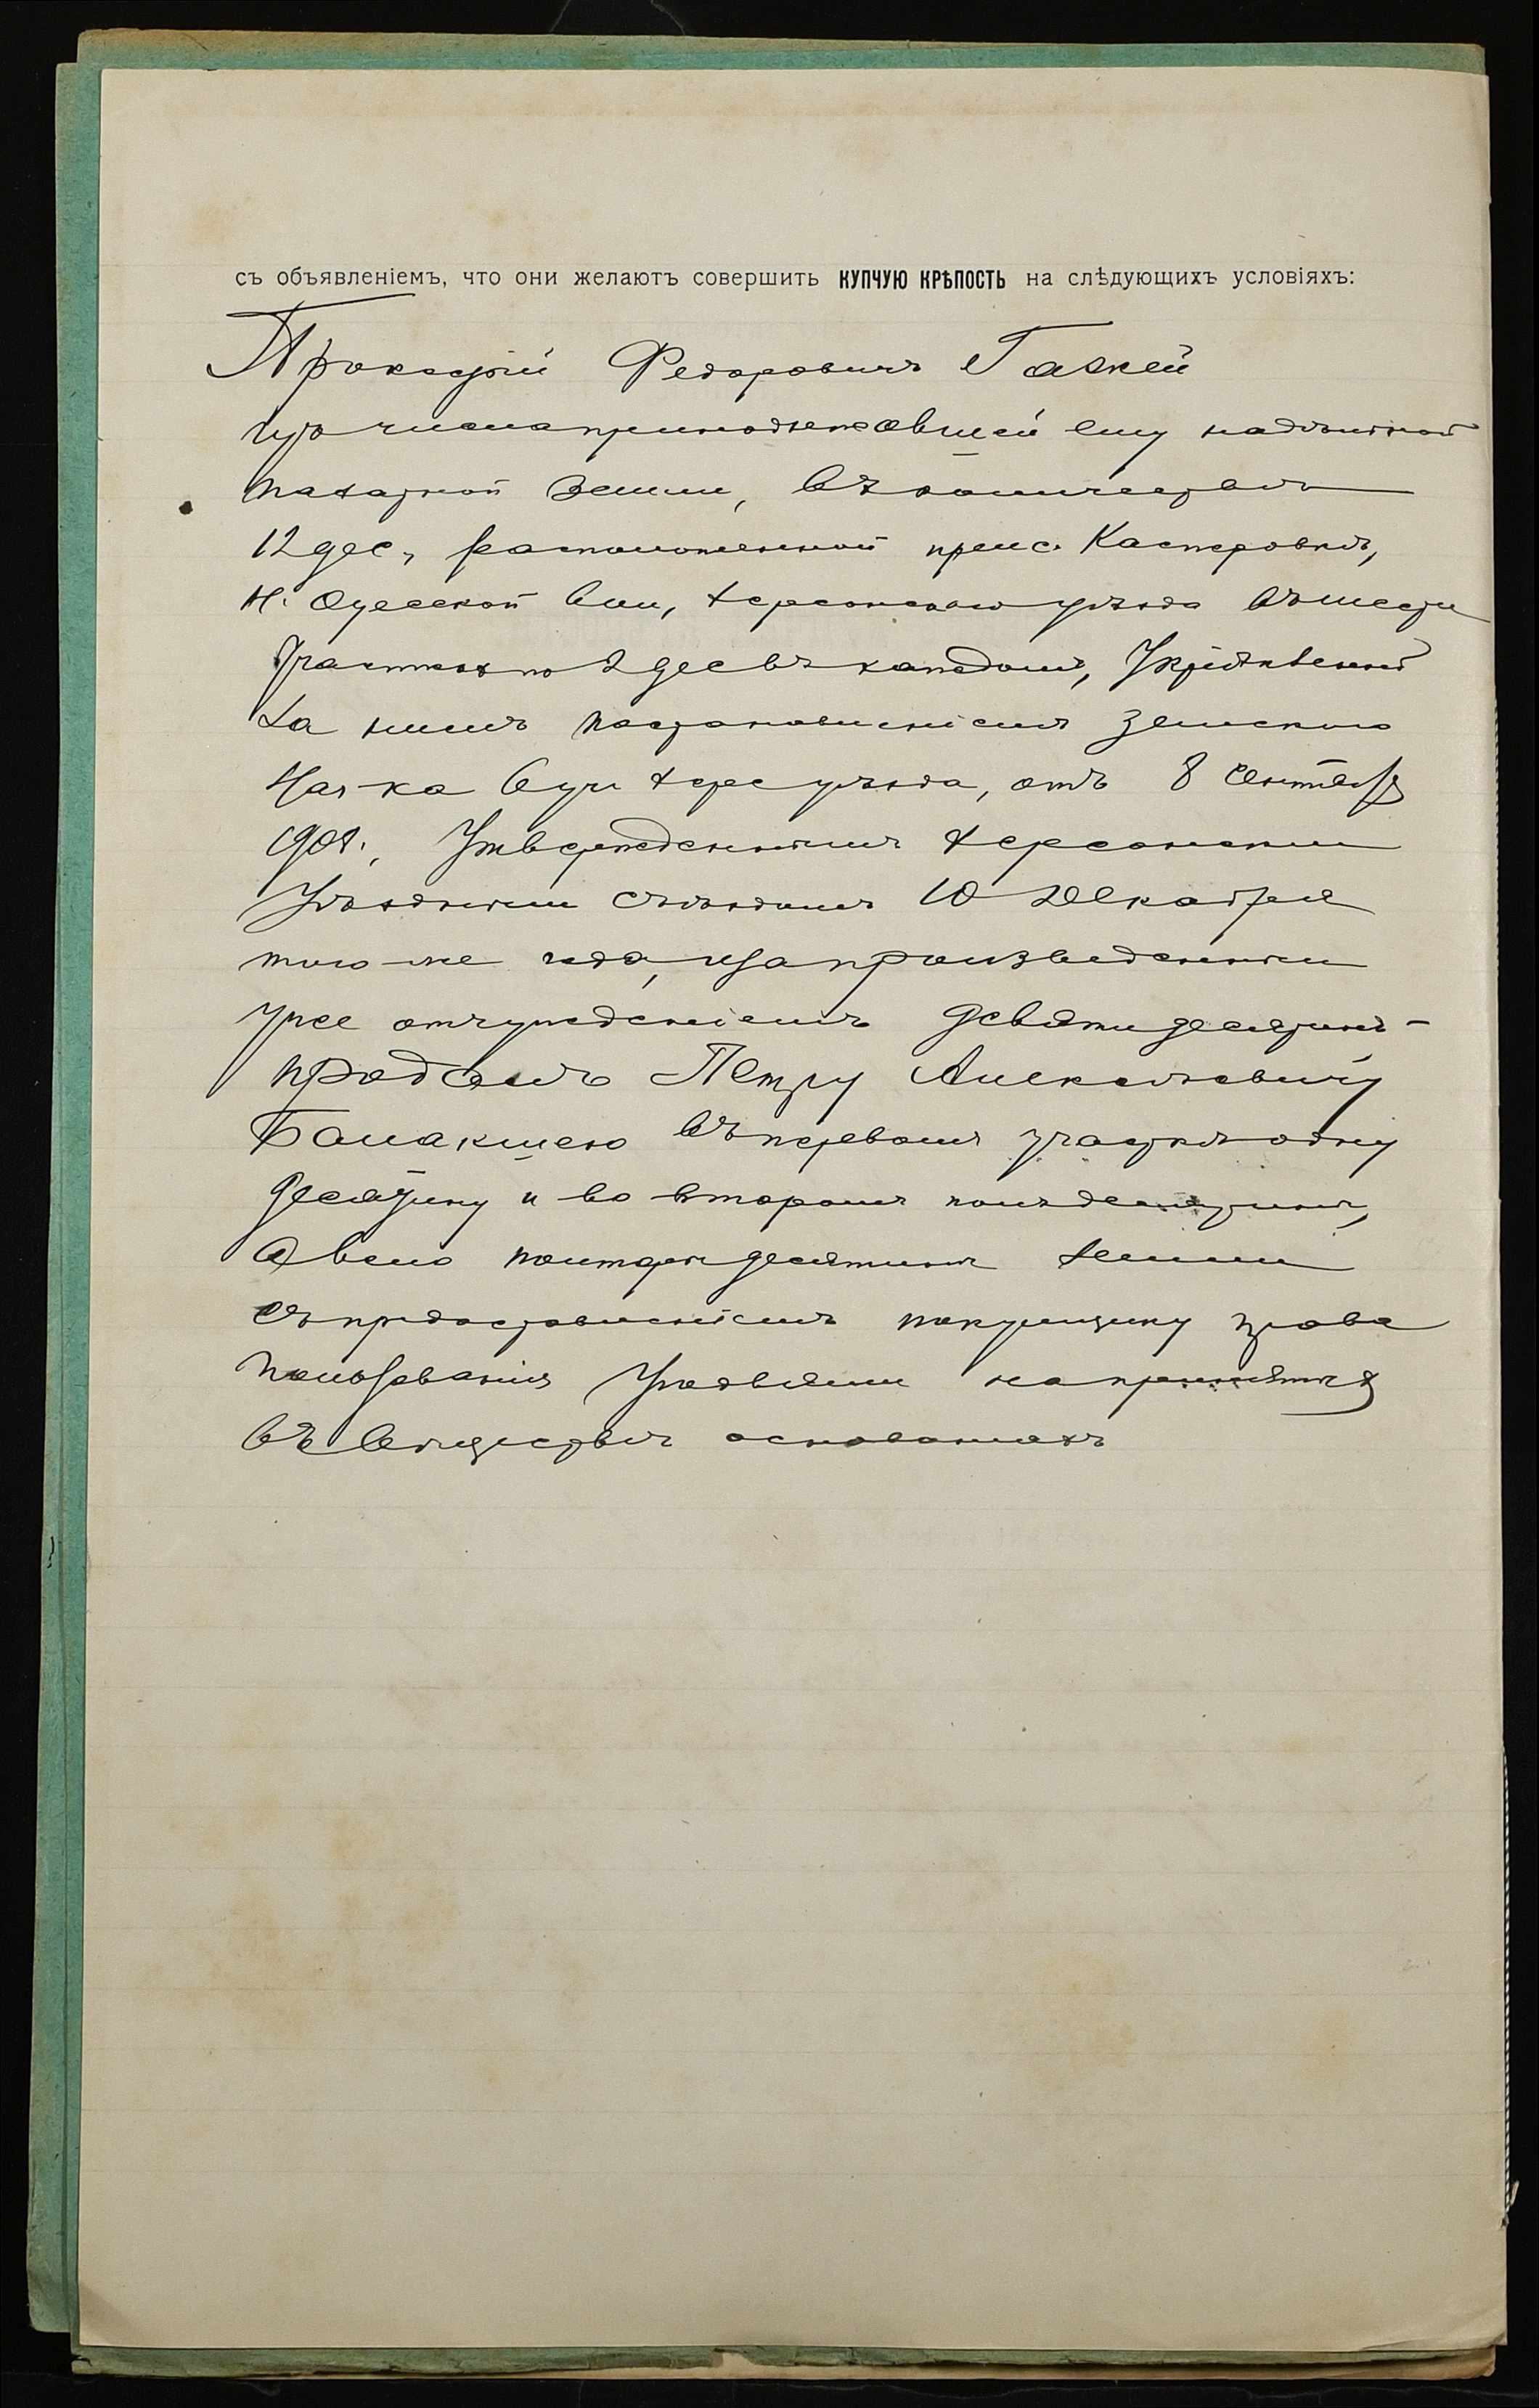 съ объявленіемъ, что они желаютъ совершить КУПЧУЮ КРѢПОСТЬ на слѣдующихъ условіяхъ:
Федоровичъ
изъ числа принадлежавшей ему надѣльной
пахатной земли, въ количествѣ
12 дес, расположенной при с. Касперовкѣ,
Н. Одесской вол, Херсонскаго уѣзда въ шести
участкахъ по 2 дес въ каждомъ, Укрѣпленной
за нимъ постановленіемъ Земскаго
Нач-ка 6 уч Херс уѣзда, отъ 8 Сентября
Утвержденнымъ Херсонскимъ
Уѣзднымъ Съѣздомъ 10 Декабря
того-же года, за произведеннымъ
уже отчужденіемъ девяти десятинъ -
продалъ Петру Алексѣевичу
Балакшею въ первомъ участкѣ одну
десятину и во второмъ полъ десятины,
а всего полторы десятины земли
съ предоставленіемъ покупщику права
пользованія угодьями на принятыхъ
въ Обществѣ основаніяхъ